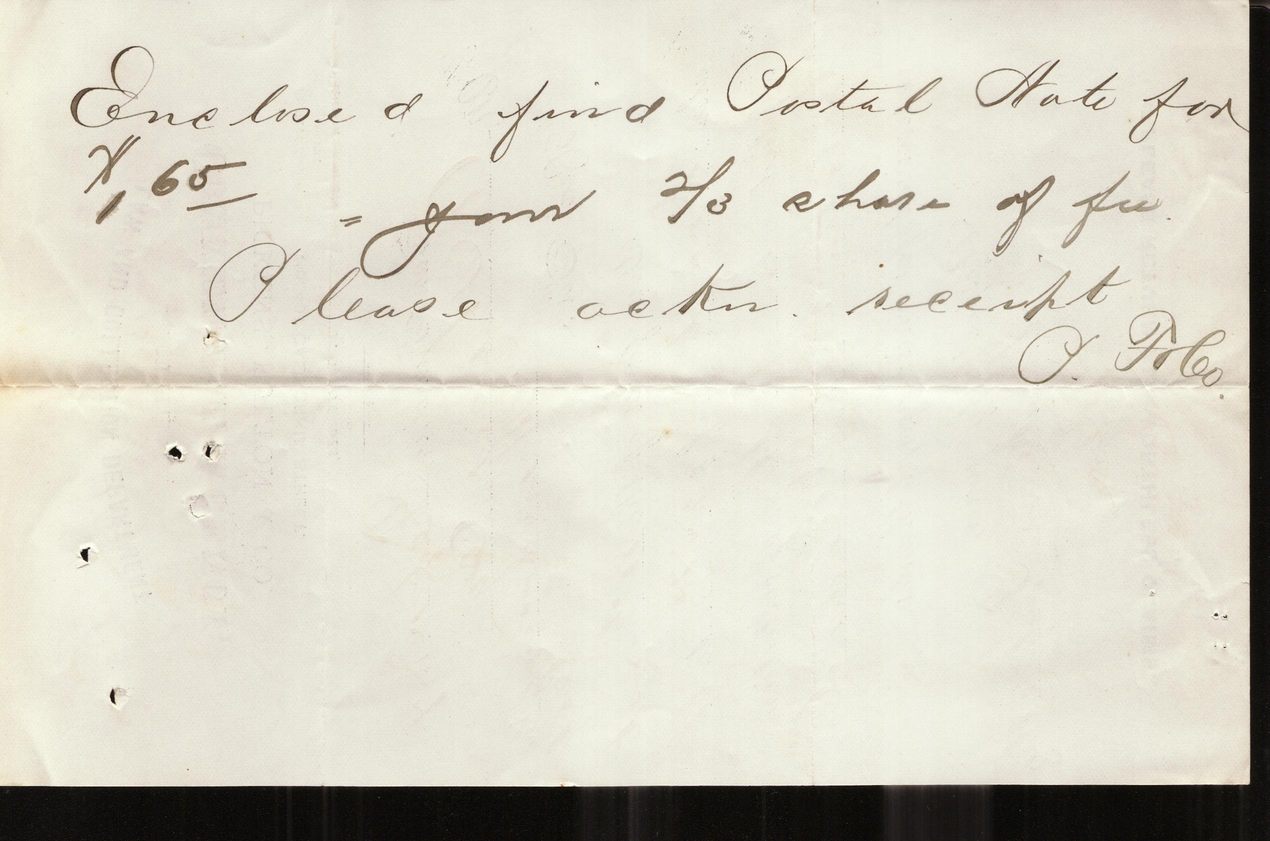 Enclosed find Postal Note for
$1,65 = your 2/3 share of fee.
Please ackn. receipt
P. Fr Co.